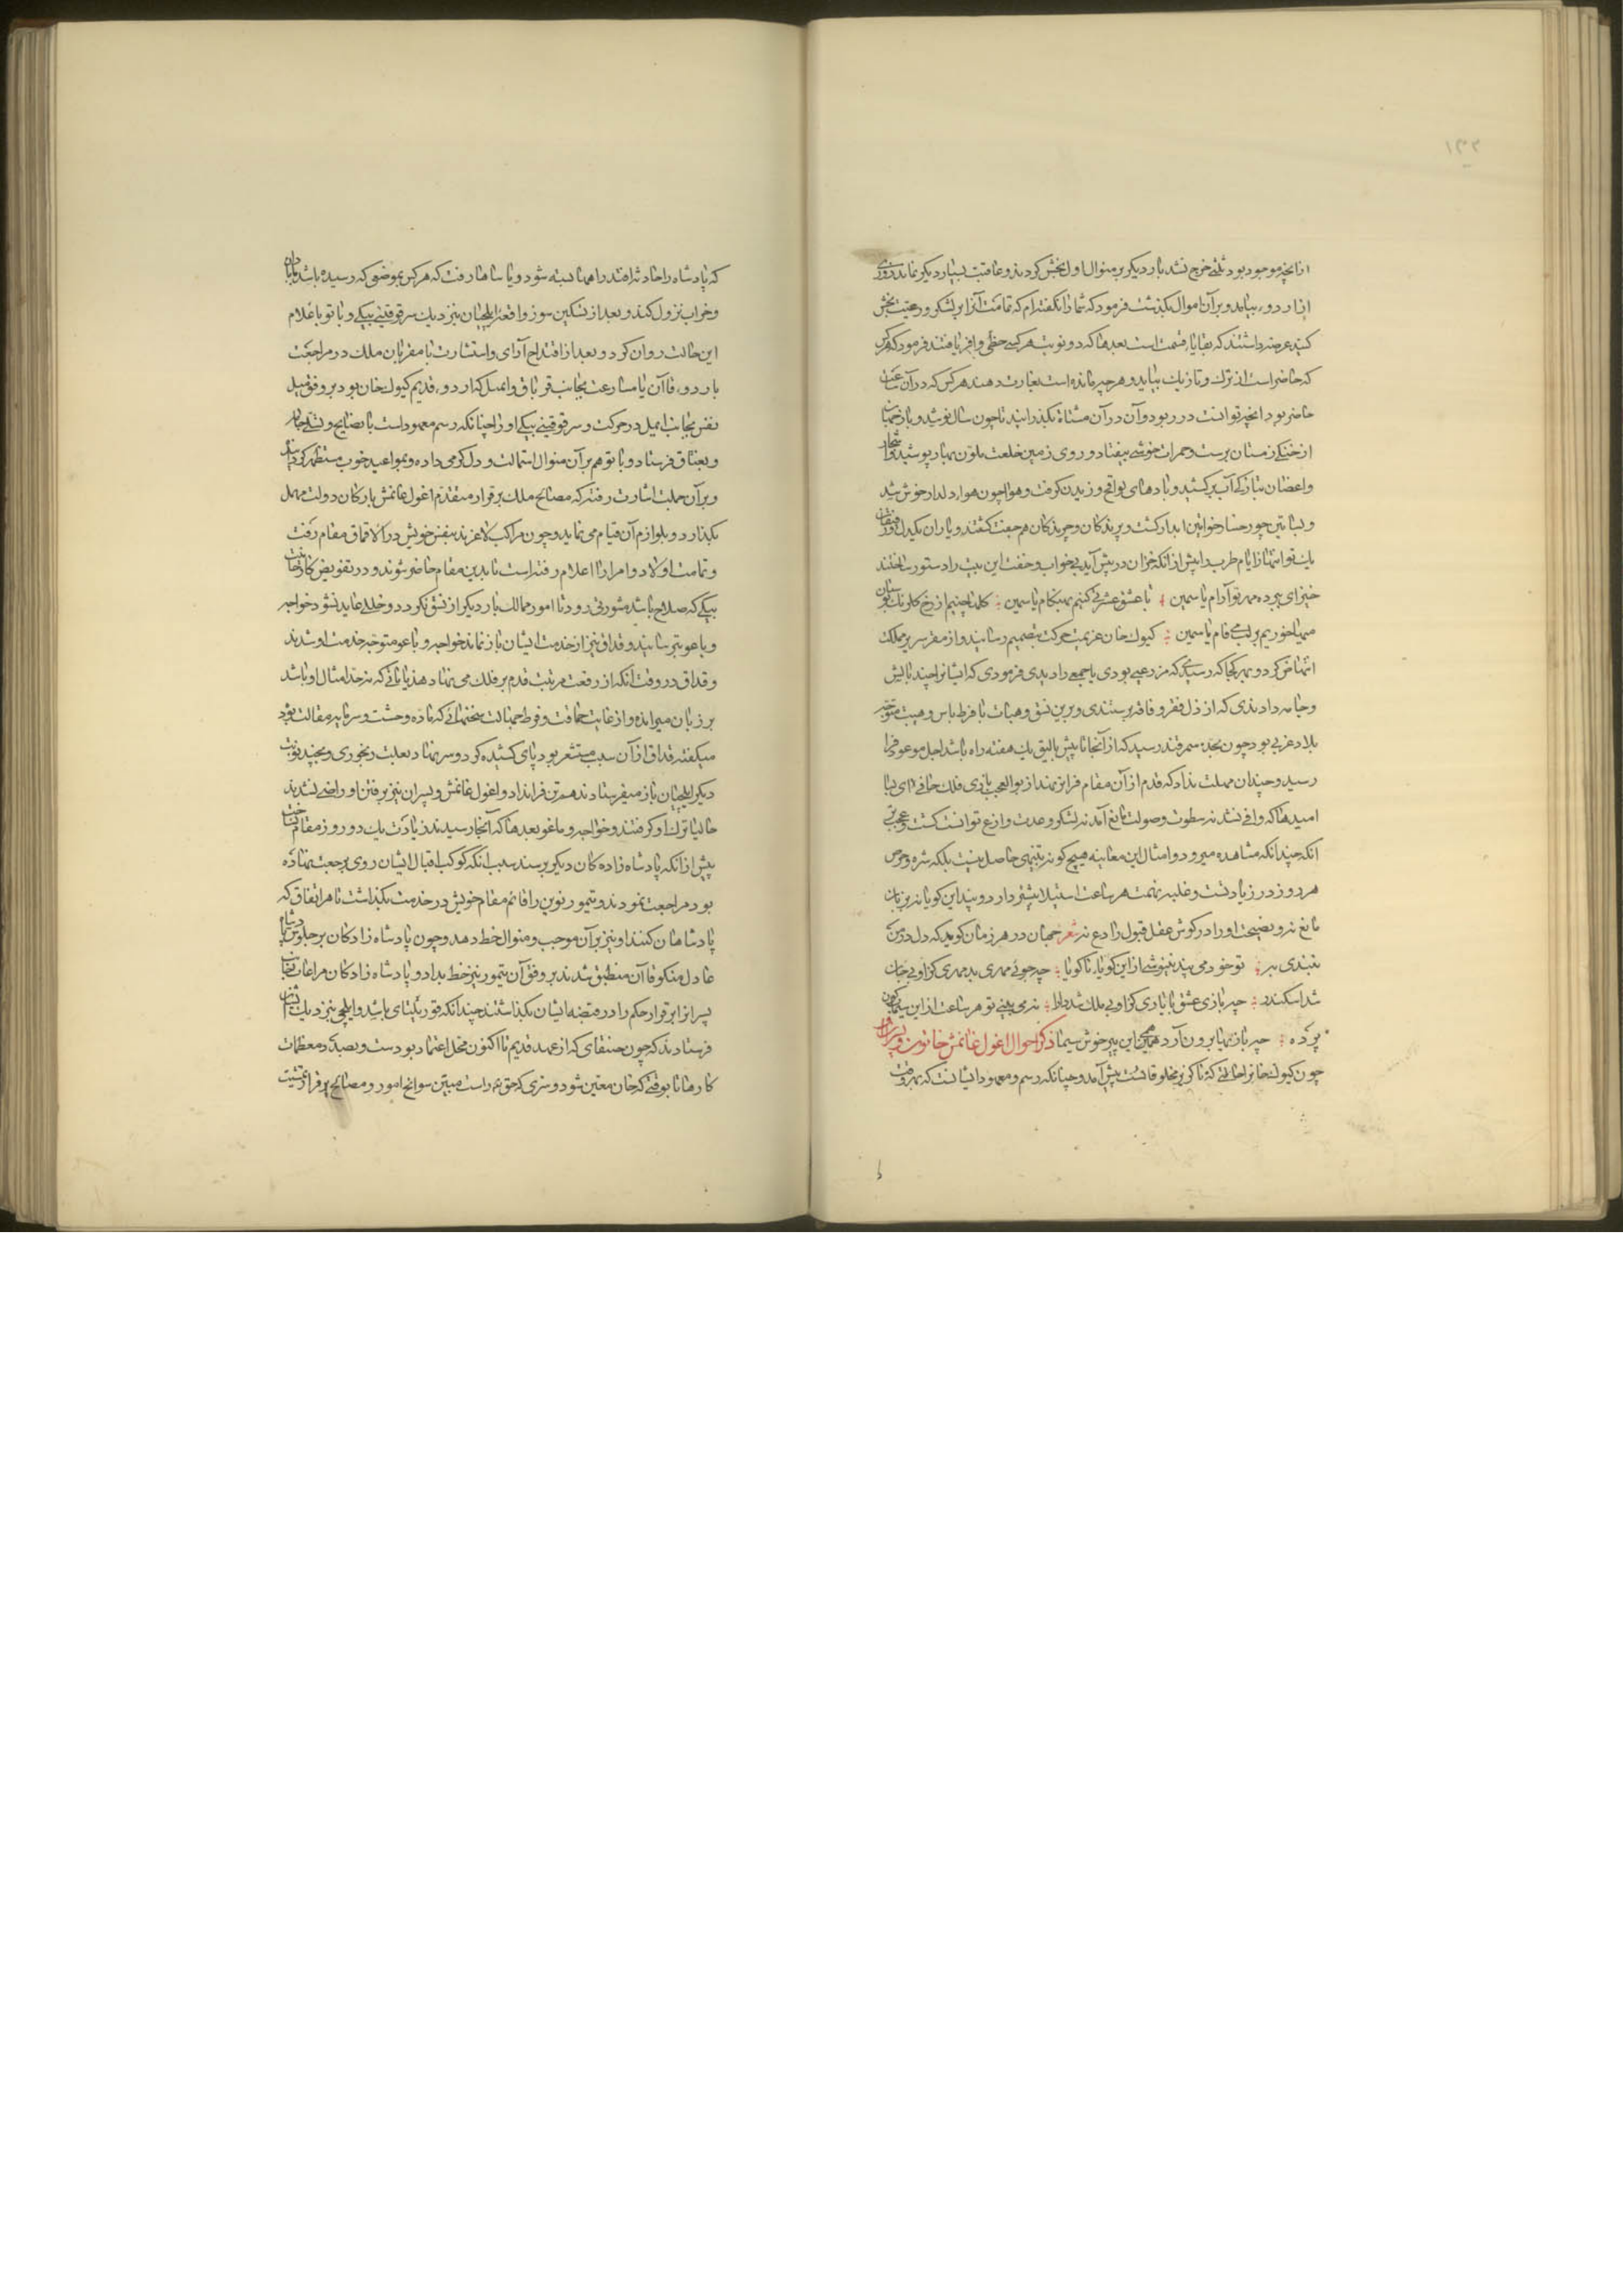 ۱۳۲
از آنچه موجود بود ثلثی خرج نشد بار دیگر بر منوال اول بخش کردند و عاقبت بسیار دیگر نماند روزی
از اردو بیامد و بر آن اموال بگذشت فرمود که شما را نگفته‌ام که تمامت آنرا بر لشکر و رعیت بخش
کنید عرضه داشتند که بقایا قسمت است بعدما که دو نوبت هر کسی حظی وافر یافتند فرمود که هر کس
که حاضر است از ترک و تازیک بیاید و هر چه مانده است بغارت دهند هر کس که در آن ساعت
حاضر بود آنچه توانست در ربود و آن در آن مشتاة بگذرانید تا چون سال نو شد و باز جهان
از خنکی زمستان برست و جمرات خوشی بیفتاد و روی زمین خلعت ملون بهار پوشید و اشجار
و اغصان تبارکی آب برکشید و بادهای لواقح وزیدن گرفت و هوا چون هوا دلدار خوش شد
و بساتین چو رخسار خواتین آبدار گشت و پرندگان و چرندگان هم جفت گشتند و یاران یکدل و رفیقان
یک تو انتهاز ایام طرب را پیش از آنکه خزان در پیش آید بی خواب و خفت این بیت را دستور ساختند
خیز ای برده مهر تو آرام یاسمین تا عشق عشرتی کنیم بهنگام یاسمین گلها چنیم از رخ گلرنگ بوستان
میها خوریم بر لب می فام یاسمین کیوک خان عزیمت حرکت بتصمیم رسانید و از مقر سریر مملکت
انتهاض کرد و بهر کجا که رسید که مزدرعی بودی یا جمعی را دیدی فرمودی که ایشانرا چند بالش
و جامه دادندی که از ذل فقر و فاقه برستندی و برین نسق و هیات با فرط باس و هیبت متوجه
بلاد غربی بود چون بحد سمرقند رسید که از آنجا تا بیش بالیق یک هفته راه باشد اجل موعود فرا
رسید و چندان مهلت نداد که قدم از آن مقام فراتر نهند از بوالعجب بازی فلک جافی ای بسا
امیدها که وافی نشد نه سطوت و صولت مانع آمد نه لشکر و عدت وازع توانست گشت و عجب‌تر
آنکه چندانکه مشاهده میرود و امثال این معاینه هیچ گونه تنبهی حاصل نیست بلکه شره و حرص
هر روز در زیادتست و غلبه نهمت هر ساعت استیلا بیشتر دارد و پند این گویا نه بر زبان
مانع نه و نصیحت او را در گوش عقل قبول رادع نه شعر جهان در هر زمان گوید که دل در من
نبندی به تو خود می پند ننیوشی از این گویاء ناگویا چه جوئی مهر بد مهری کز او بی جان
شد اسکندر چه بازی عشق با یاری کز او بی ملک شد دارا نمی بینی تو هر ساعت از این سیمابگون
پرده چه بازیها برون آرد همی این پیر خوش سیما ذکر احوال اغول غایمش خاتون و پسران او
چون کیوک خانرا حالتی که ناگزیر مخلوقاتست پیش آمد و چنانکه رسم و معهود ایشانست که بهر وقت
که پادشاه را حادثه افتد راهها بسته شود و یاسا رفت که هر کس بموضعی که رسیده باشد آبادان
و خراب نزول کند و بعد از تسکین سوز واقعه ایلچیان بنزدیک سرقوقیتی بیکی و باتو باعلام
این حالت روان کرد و بعد از اقتداح آرای و استشارت با مقربان ملک در مراجعت
باردوء قاآن یا مسارعت بجانب قوباق و ایمیل که اردوء قدیم کیوک خان بود بر وفق میل
نفس بجانب ایمیل در حرکت و سرقوقیتی بیکی او را چنانکه رسم معهود است با نصایح و تسلی جامه
و بغتاق فرستاد و باتو هم بر آن منوال استمالت و دل گرمی داده و بمواعید خوب مستظهر گردانید
و بر آن جملت اشارت رفته که مصالح ملک بر قرار متقدم اغول غایمش با ارکان دولت مهمل
نگذارد و بلوازم آن قیام می نماید و چون مراکب لاغرند بنفس خویش در الاقماق مقام رفت
و تمامت اولاد و امرا را اعلام رفته است تا بدین مقام حاضر شوند و در تفویض کار خانیت
بیکی که صلاح باشد مشورتی رود تا امور ممالک بار دیگر از نسق نگردد و خللی عاید نشود خواجه
و باغو نیز رسانید و قداق نیز از خدمت ایشان باز نماند خواجه و باغو متوجه خدمت او شدند
و قداق در وقت آنکه از رفعت مرتبت قدم بر فلک می نهاد هذیاناتی که نه حد امثال او باشد
بر زبان میرانده و از غایت حماقت و فرط جهالت سخنهائی که ماده وحشت و سرمایه مقالت بود
میگفته قداق از آن سبب مستشعر بود پای کشیده کرد و سر بنهاد بعلت رنجوری و بچند نوبت
دیگر ایلچیان باز میفرستادند هم تن فرا نداد و اغول غایمش و پسران نیز برفتن او راضی نشدند
حالیا ترک او گرفتند و خواجه و باغو بعدما که آنجا رسیدند زیادت یک دو روز مقام نساختند
پیش از آنکه پادشاه زادگان دیگر برسند سبب آنکه کوکب اقبال ایشان روی برجعت نهاده
بود مراجعت نمودند و تیمور نوین را قائم مقام خویش در خدمت بگذاشت تا هر اتفاق که
پادشاهان کنند او نیز بر آن موجب و منوال خط دهد و چون پادشاه زادگان بر جلوس پادشاه
عادل منکو قاآن منطبق شدند بر وفق آن تیمور نیز خط بداد و پادشاه زادگان مراعات جانب
پسرانرا بر قرار حکم را در قبضه ایشان بگذاشتند چندانکه قوریلتای باشد و ایلچی بنزدیک ایشان
فرستادند که چون جینقای که از عهد قدیم تا اکنون محل اعتماد بودست و بصدد معظمات
کارها تا بوقتی که خان معین شود و سری که حق عز و راست مبین سوانح امور و مصالح بر قرار تمشیت